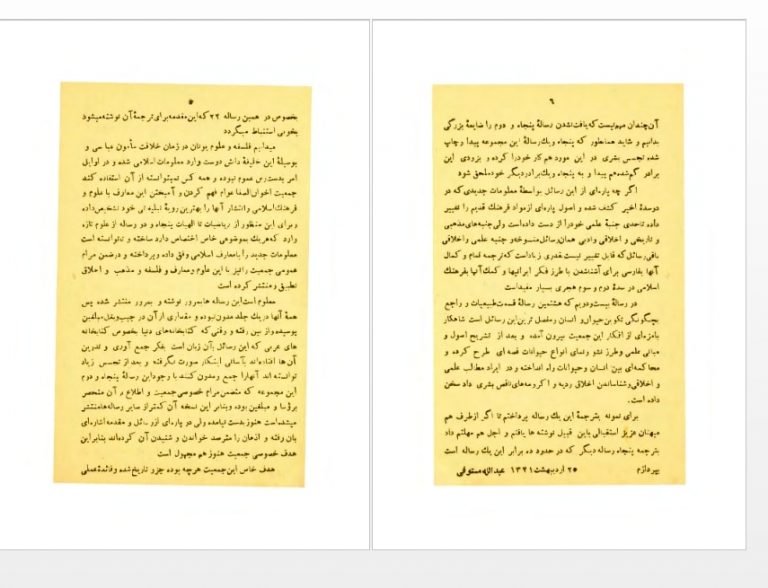 ۵
بخصوص در همین رساله ۲۲ که این مقدمه برای ترجمهٔ آن نوشته میشود
بخوبی استنباط میگردد
میدانیم فلسفه و علوم یونان در زمان خلافت مأمون عباسی و
بوسیلهٔ این خلیفهٔ دانش دوست وارد معلومات اسلامی شده و در اوایل
امر بدسترس عموم نبوده و همه کس نمیتوانسته از آن استفاده کند
جمعیت اخوان الصفا عوام فهم کردن و آمیختن این معارف با علوم و
فرهنك اسلامی و انتشار آنها را بهترین رویهٔ تبلیغاتی خود تشخیص داده
و برای این منظور از ریاضیات تا الهیات پنجاه و دو رساله از علوم تازه
وارد که هریك بموضوعی خاص اختصاص دارد ساخته و تا توانسته است
معلومات جدید را با معارف اسلامی وفق داده و پرداخته و در ضمن مرام
عمومی جمعیت را نیز با این علوم و معارف و فلسفه و مذهب و اخلاق
تطبیق و منتشر کرده است
معلوم است این رساله ها بمرور نوشته و بمرور منتشر شده پس
همهٔ آنها در یك جلد مدون نبوده و مقداری از آن در جیب و بغل مبلغین
پوسیده و از بین رفته و وقتی که کتابخانه های دنیا بخصوص کتابخانه
های عربی که این رسائل بآن زبان است بفکر جمع آوری و تدوین
آن ها افتاده اند بآسانی اینکار صورت نگرفته و بعد از تجسس زیاد
توانسته اند آنها را جمع و مدون کنند با وجود این رسالهٔ پنجاه و دوم
این مجموعه که متضمن مرام خصوصی جمعیت و اطلاع بر آن منحصر
برؤسا و مبلغین بوده و بنابر این نسخه آن کمتر از سایر رساله ها منتشر
میشده است هنوز بدست نیامده ولی در پاره ای از رسائل و مقدمه اشاره ای
بآن رفته و اذهان را مترصد خواندن و شنیدن آن کرده اند بنابر این
هدف خصوصی جمعیت هنوز هم مجهول است
هدف خاص این جمعیت هرچه بوده جزو تاریخ شده و فائدهٔ عملی
۶
آن چندان مهم نیست که یافت نشدن رسالهٔ پنجاه و دوم را ضایعهٔ بزرگی
بدانیم و شاید همانطور که پنجاه و یك رسالهٔ این مجموعه پیدا و چاپ
شده تجسس بشری در این مورد هم کار خود را کرده و بزودی این
برادر گم شده هم پیدا و به پنجاه و یك برادر دیگر خود ملحق شود
اگر چه پاره ای از این رسائل بواسطهٔ معلومات جدیدی که در
دو سدهٔ اخیر کشف شده و اصول پاره ای از مواد فرهنك قدیم را تغییر
داده تا حدی جنبهٔ علمی خود را از دست داده است ولی جنبه های مذهبی
و تاریخی و اخلاقی و ادبی همان رسائل منسوخه و جنبه علمی و اخلاقی
باقی رسائل که قابل تغییر نیست بقدری زیاد است که ترجمه تمام و کمال
آنها بفارسی برای آشنا شدن با طرز فکر ایرانیها و کمك آنها بفرهنك
اسلامی در سدهٔ دوم و سوم هجری بسیار مفید است
در رسالهٔ بیست و دویم که هشتمین رسالهٔ قسمت طبیعیات و راجع
بچگونگی تکوین حیوان و انسان و مفصل ترین این رسائل است شاهکار
بامزه ای از افکار این جمعیت بیرون آمده و بعد از تشریح اصول و
مبانی علمی و طرز نشو و نمای انواع حیوانات قصه ای طرح کرده و
محاکمه ای بین انسان و حیوانات راه انداخته و در ایراد مطالب علمی
و اخلاقی و شناساندن اخلاق ردیه و اکرومه های ناقص بشری داد سخن
داده است.
برای نمونه بترجمهٔ این یك رساله پرداختم تا اگر از طرف هم
میهنان عزیز استقبالی باین قبیل نوشته ها یافتم و اجل هم مهلتم داد
بترجمه پنجاه رساله دیگر که در حدود ده برابر این یك رساله است
بپردازم
۲۵ اردیبهشت ۱۳۲۱ عبدالله مستوفی